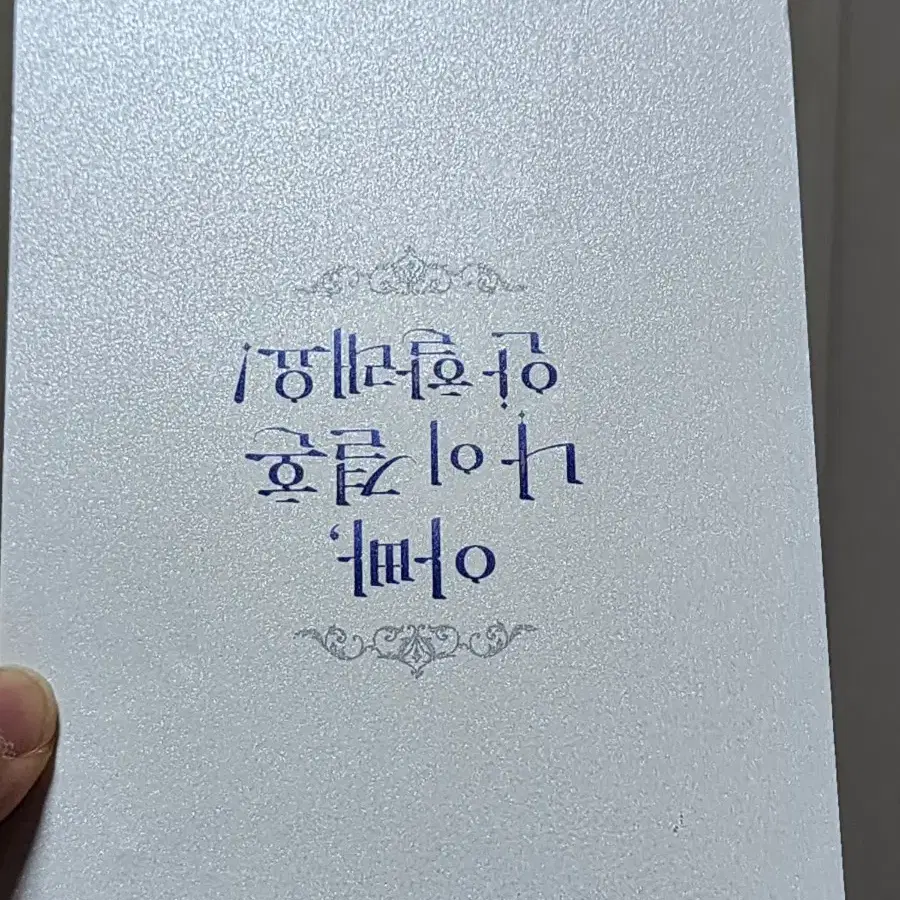 아빠,
나 이 결혼
안 할래요!